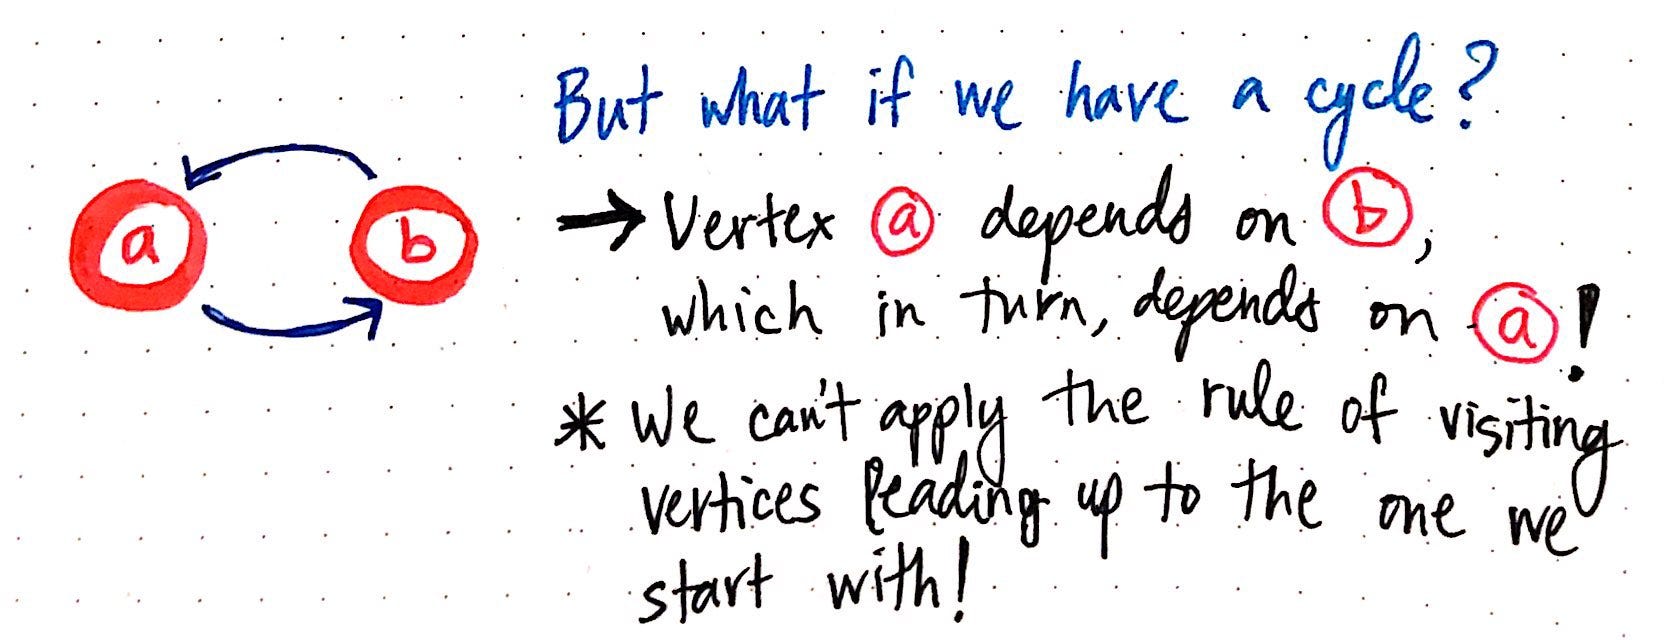 But what if we have a cycle?
a
b
→ Vertex a depends on b,
which in turn, depends on a!
* We can't apply the rule of visiting
vertices leading up to the one we
start with!